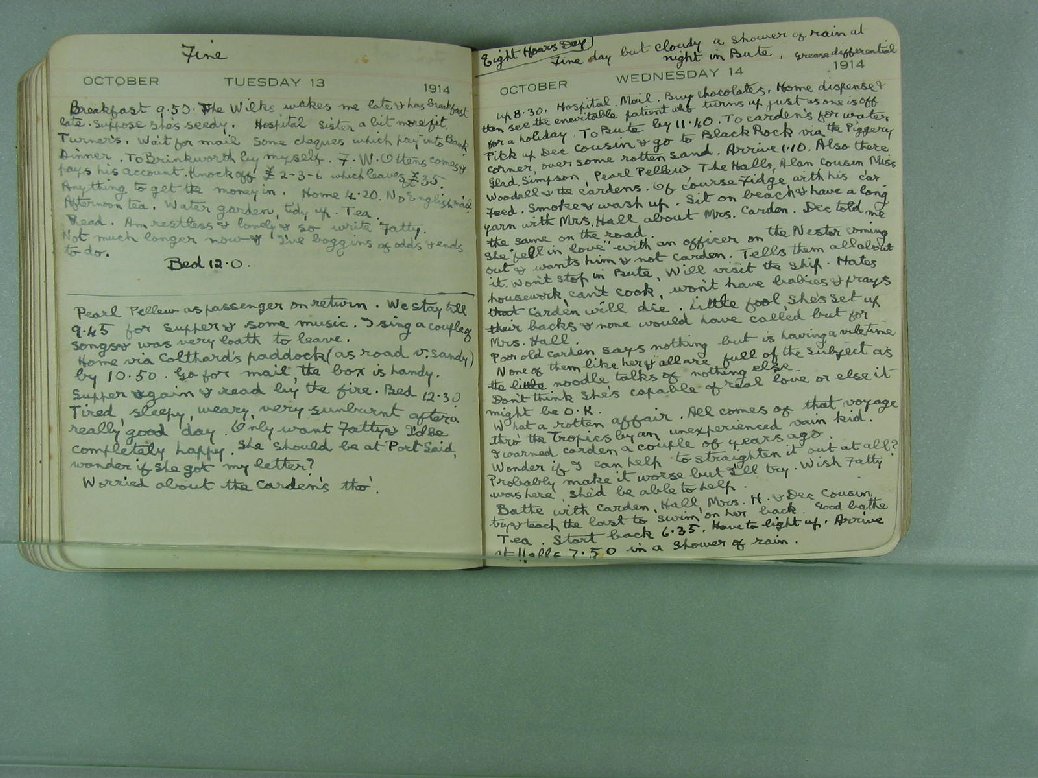 Fine
OCTOBER TUESDAY 13 1914
Breakfast 9.50. The Wilks wakes me late & has breakfast
late. Suppose she's seedy. Hospital Sister a bit more fit.
Turner's. Wait for mail Some cheques which pay into Bank
Dinner. To Brinkworth by myself. F. W. Ottens comes &
pays his account. Knock off £2-3-6 which leaves £35.
Anything to get the money in. Home 4.20. No English mail
Afternoon tea. Water garden, tidy up. Tea.
Read. Am restless & lonely & so write Fatty.
Not much longer now & I've boggins of odds & ends
to do.
Bed 12.0.
Pearl Pellew as passenger on return. We stay till
9.45 for supper & some music. I sing a couple of
songs & was very loath to leave.
Home via Colthard's paddock (as road v. sandy)
by 10.50. Go for mail, the box is handy.
Supper again & read by the fire. Bed 12.30
Tired, sleepy, weary, very sunburnt after a
really good day. Only want Fatty & I'd be
completely happy. She should be at Port Said,
wonder if she got my letter?
Worried about the Carden's tho'.
Eight Hours Day
Fine day but cloudy a shower of rain at
night in Bute. Grease differential
OCTOBER WEDNESDAY 14 1914
Up 8.30. Hospital. Mail. Buy chocolates. Home dispense &
then see the inevitable patient who turns up just as one is off
for a holiday. To Bute by 11.40. To Carden's for water
Pick up Dec cousin & go to Black Rock via the Piggery
corner, over some rotten sand. Arrive 1.10. Also there
Glad. Simpson, Pearl Pellew, The Halls, Alan cousin Miss
Woodall & the Cardens. Of course Fidge with his car
Feed. Smoke & wash up. Sit on beach & have a long
yarn with Mrs. Hall about Mrs. Carden. Dec told me
the same on the road.
She "fell in love" with an officer on the Nestor coming
out & wants him & not Carden. Tells them all about
it. Won't stop in Bute. Will visit the ship. Hates
housework, can't cook, won't have babies & prays
that Carden will die. Little fool she's set up
their backs & none would have called but for
Mrs. Hall.
Poor old Carden says nothing but is having a vile time
None of them like her & all are full of the subject as
the little noodle talks of nothing else.
Don't think she's capable of real love or else it
might be O.K.
What a rotten affair. All comes of that voyage
thro' the Tropics by an unexperienced vain kid.
I warned Carden a couple of years ago.
Wonder if I can help to straighten it out at all?
Probably make it worse but I'll try. Wish Fatty
was here, she'd be able to help.
Bathe with Carden, Hall, Mrs. H. & Dec Cousin
try & teach the last to swim on her back. Good bathe
Tea. Start back 6.35. Have to light up. Arrive
at Halls 7.50 in a shower of rain.